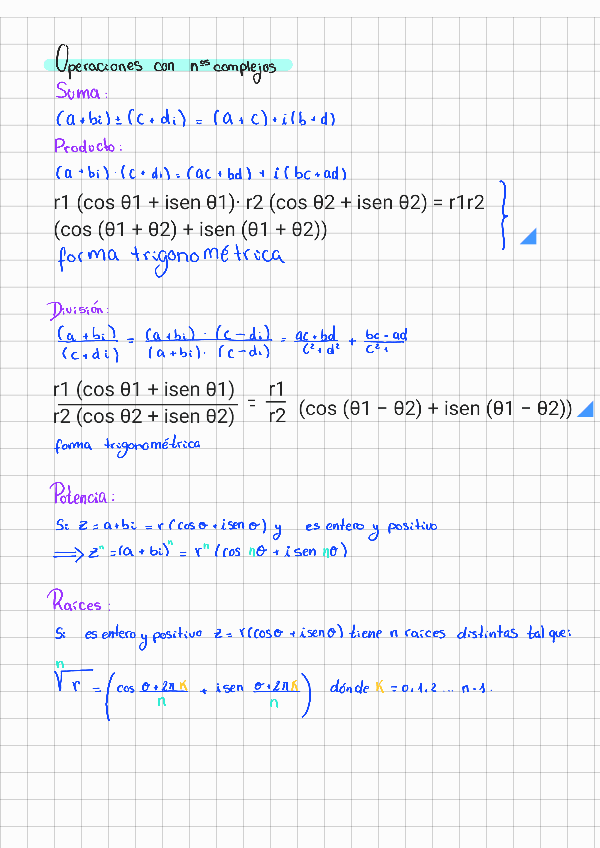 Operaciones con nºs complejos
Suma:
(a+bi) ± (c+di) = (a+c)+i(b+d)
Producto:
(a+bi)·(c+di)=(ac+bd)+i(bc+ad)
r1 (cos θ1 + isen θ1)· r2 (cos θ2 + isen θ2) = r1r2
(cos (θ1 + θ2) + isen (θ1 + θ2))
forma trigonométrica
División:
(a+bi)/(c+di) = (a+bi)·(c-di)/(a+bi)·(c-di) = ac+bd/c²+d² + bc-ad/c²+
r1 (cos θ1 + isen θ1)/r2 (cos θ2 + isen θ2) = r1/r2 (cos (θ1 − θ2) + isen (θ1 − θ2))
forma trigonométrica
Potencia:
Si z=a+bi = r(cosθ+isenθ) y es entero y positivo
⟹ zⁿ=(a+bi)ⁿ = rⁿ(cos nθ + isen nθ)
Raíces:
Si es entero y positivo z=r(cosθ+isenθ) tiene n raíces distintas tal que:
ⁿ√r = (cos θ+2πK/n + isen θ+2πK/n) dónde K=0,1,2 ... n-1.